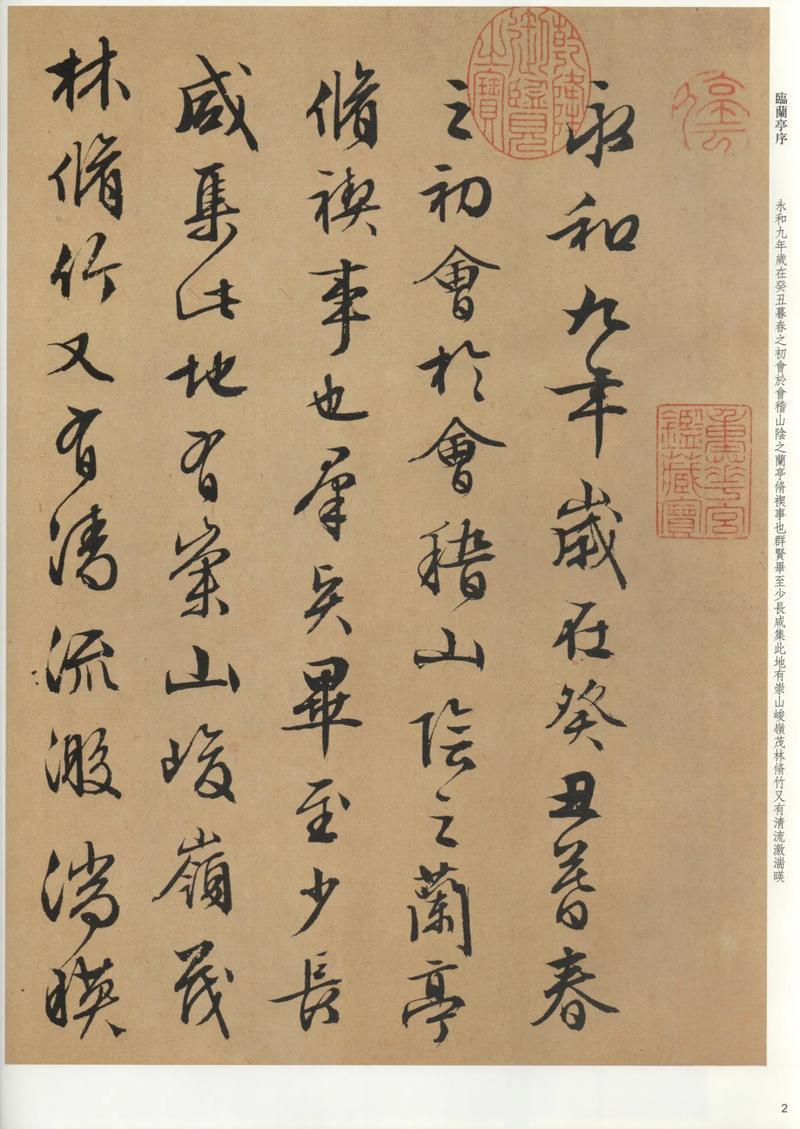 臨蘭亭序
永和九年歲在癸丑暮春之初會於會稽山陰之蘭亭脩禊事也群賢畢至少長咸集此地有崇山峻嶺茂林脩竹又有清流激湍暎
永和九年歲在癸丑暮春
之初會於會稽山陰之蘭亭
脩禊事也羣賢畢至少長
咸集此地有崇山峻嶺茂
林脩竹又有清流激湍暎
乾隆御覽之寶
重華宮鑑藏寶
2